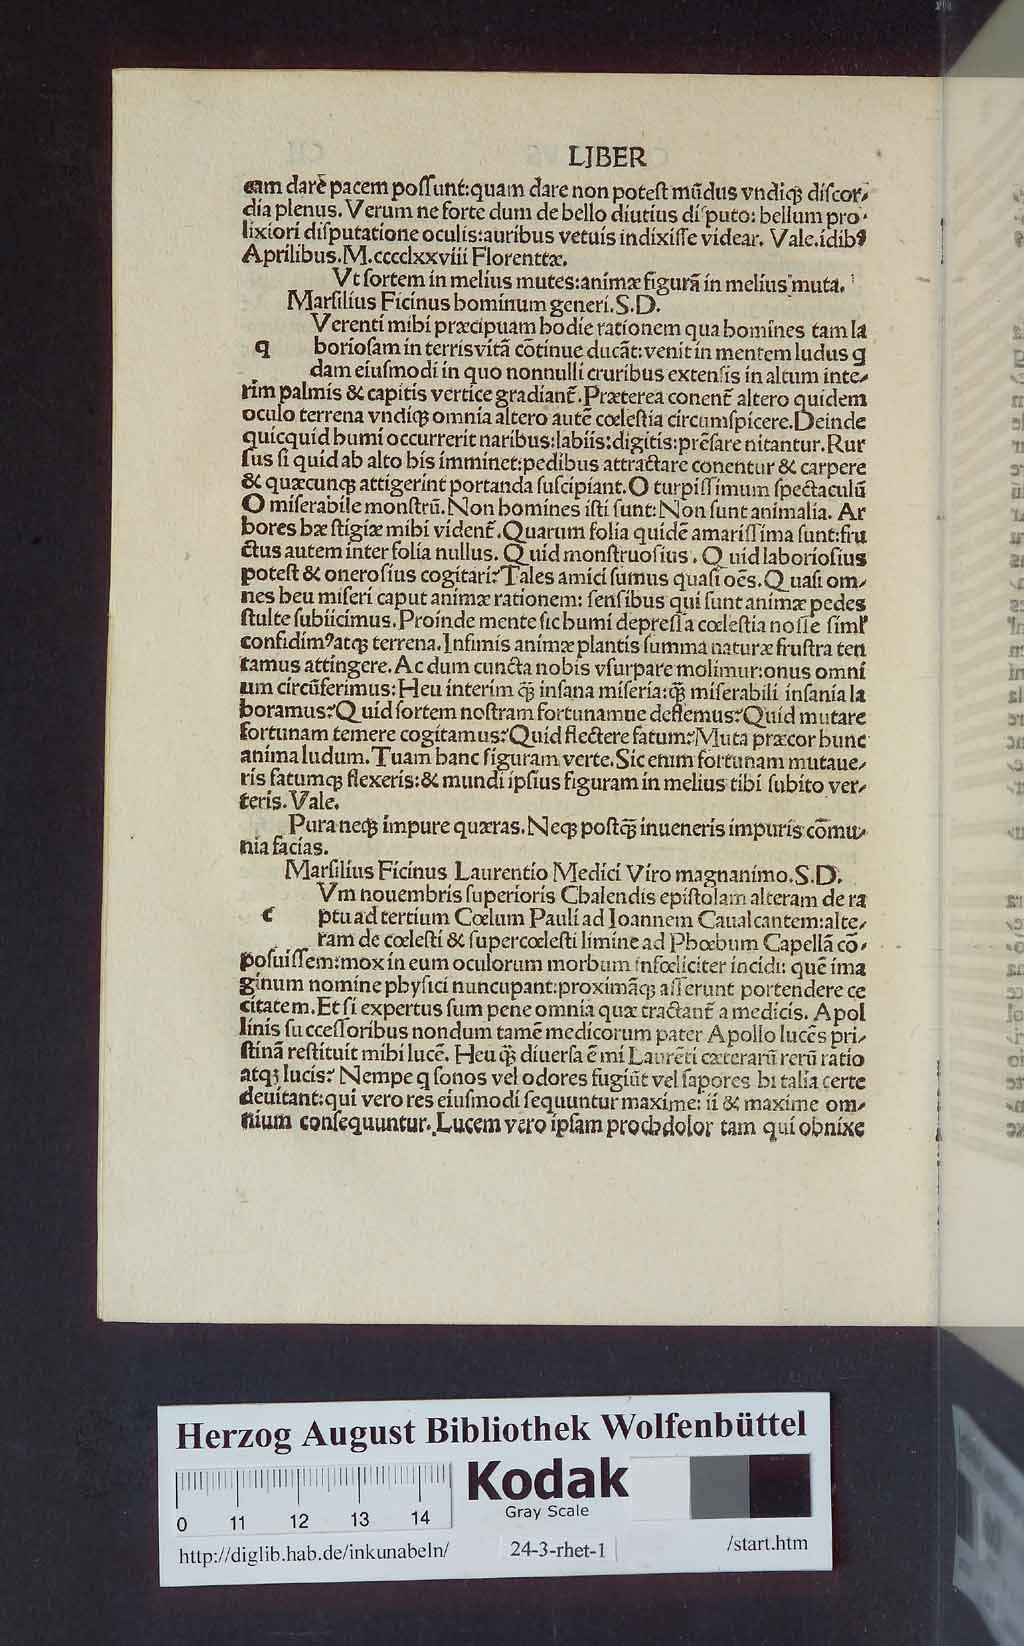 LIBER
eam darē pacem poſſunt:quam dare non poteſt mūdus vndiqꝫ diſcor⸗
dia plenus. Verum ne forte dum de bello diutius diſputo: bellum pro⸗
lixiori diſputatione oculis:auribus vetuis indixiſſe videar. Vale.idibꝰ
Aprilibus.M.cccclxxviii Florentiæ.
Vt ſortem in melius mutes:animæ figurā in melius muta.
Marſilius Ficinus hominum generi.S.D.
Verenti mihi præcipuam hodie rationem qua homines tam la
q borioſam in terris vitā cōtinue ducāt:venit in mentem ludus q
dam eiuſmodi in quo nonnulli cruribus extenſis in altum inte⸗
rim palmis & capitis vertice gradianť.Præterea conenť altero quidem
oculo terrena vndiqꝫ omnia altero autē cœleſtia circumſpicere.Deinde
quicquid humi occurrerit naribus:labiis:digitis:prēſare nitantur.Rur
ſus ſi quid ab alto his imminet:pedibus attractare conentur & carpere
& quæcunqꝫ attigerint portanda ſuſcipiant.O turpiſſimum ſpectaculū
O miſerabile monſtrū.Non homines iſti ſunt:Non ſunt animalia. Ar
bores hæ ſtigiæ mihi videnť.Quarum folia quidē amariſſima ſunt:fru
ctus autem inter folia nullus. Quid monſtruoſius. Quid laborioſius
poteſt & oneroſius cogitari?Tales amici ſumus quaſi oēs.Quaſi om⸗
nes heu miſeri caput animæ rationem: ſenſibus qui ſunt animæ pedes
ſtulte ſubiicimus.Proinde mente ſic humi depreſſa cœleſtia noſſe ſimꝉ
confidimꝰatqꝫ terrena.Infimis animæ plantis ſumma naturæ fruſtra ten
tamus attingere.Ac dum cuncta nobis vſurpare molimur:onus omni
um circūferimus:Heu interim qꝫ̄ inſana miſeria:qꝫ̄ miſerabili inſania la
boramus?Quid ſortem noſtram fortunamue deflemus?Quid mutare
fortunam temere cogitamus?Quid flectere fatum?Muta præcor hunc
anima ludum.Tuam hanc figuram verte.Sic enim fortunam mutaue⸗
ris fatumqꝫ flexeris:& mundi ipſius figuram in melius tibi ſubito ver⸗
teris.Vale.
Pura neqꝫ impure quæras.Neqꝫ poſtqꝫ̄ inueneris impuris cōmu⸗
nia facias.
Marſilius Ficinus Laurentio Medici Viro magnanimo.S.D.
Vm nouembris ſuperioris Chalendis epiſtolam alteram de ra
c ptu ad tertium Cœlum Pauli ad Ioannem Caualcantem:alte⸗
ram de cœleſti & ſupercœleſti limine ad Phœbum Capellā cō⸗
poſuiſſem:mox in eum oculorum morbum infœliciter incidi: quē ima
ginum nomine phyſici nuncupant:proximāqꝫ aſſerunt portendere ce
citatem.Et ſi expertus ſum pene omnia quæ tractanť a medicis. Apol
linis ſucceſſoribus nondum tamē medicorum pater Apollo lucēs pri⸗
ſtinā reſtituit mihi lucē. Heu qꝫ̄ diuerſa ē mi Laurēti cæterarū rerū ratio
atqꝫ lucis? Nempe q ſonos vel odores fugiūt vel ſapores hi talia certe
deuitant:qui vero res eiuſmodi ſequuntur maxime: ii & maxime om⸗
nium conſequuntur. Lucem vero ipſam proch dolor tam qui obnixe
Herzog August Bibliothek Wolfenbüttel
Kodak
Gray Scale
0 11 12 13 14
http://diglib.hab.de/inkunabeln/ 24-3-rhet-1 /start.htm